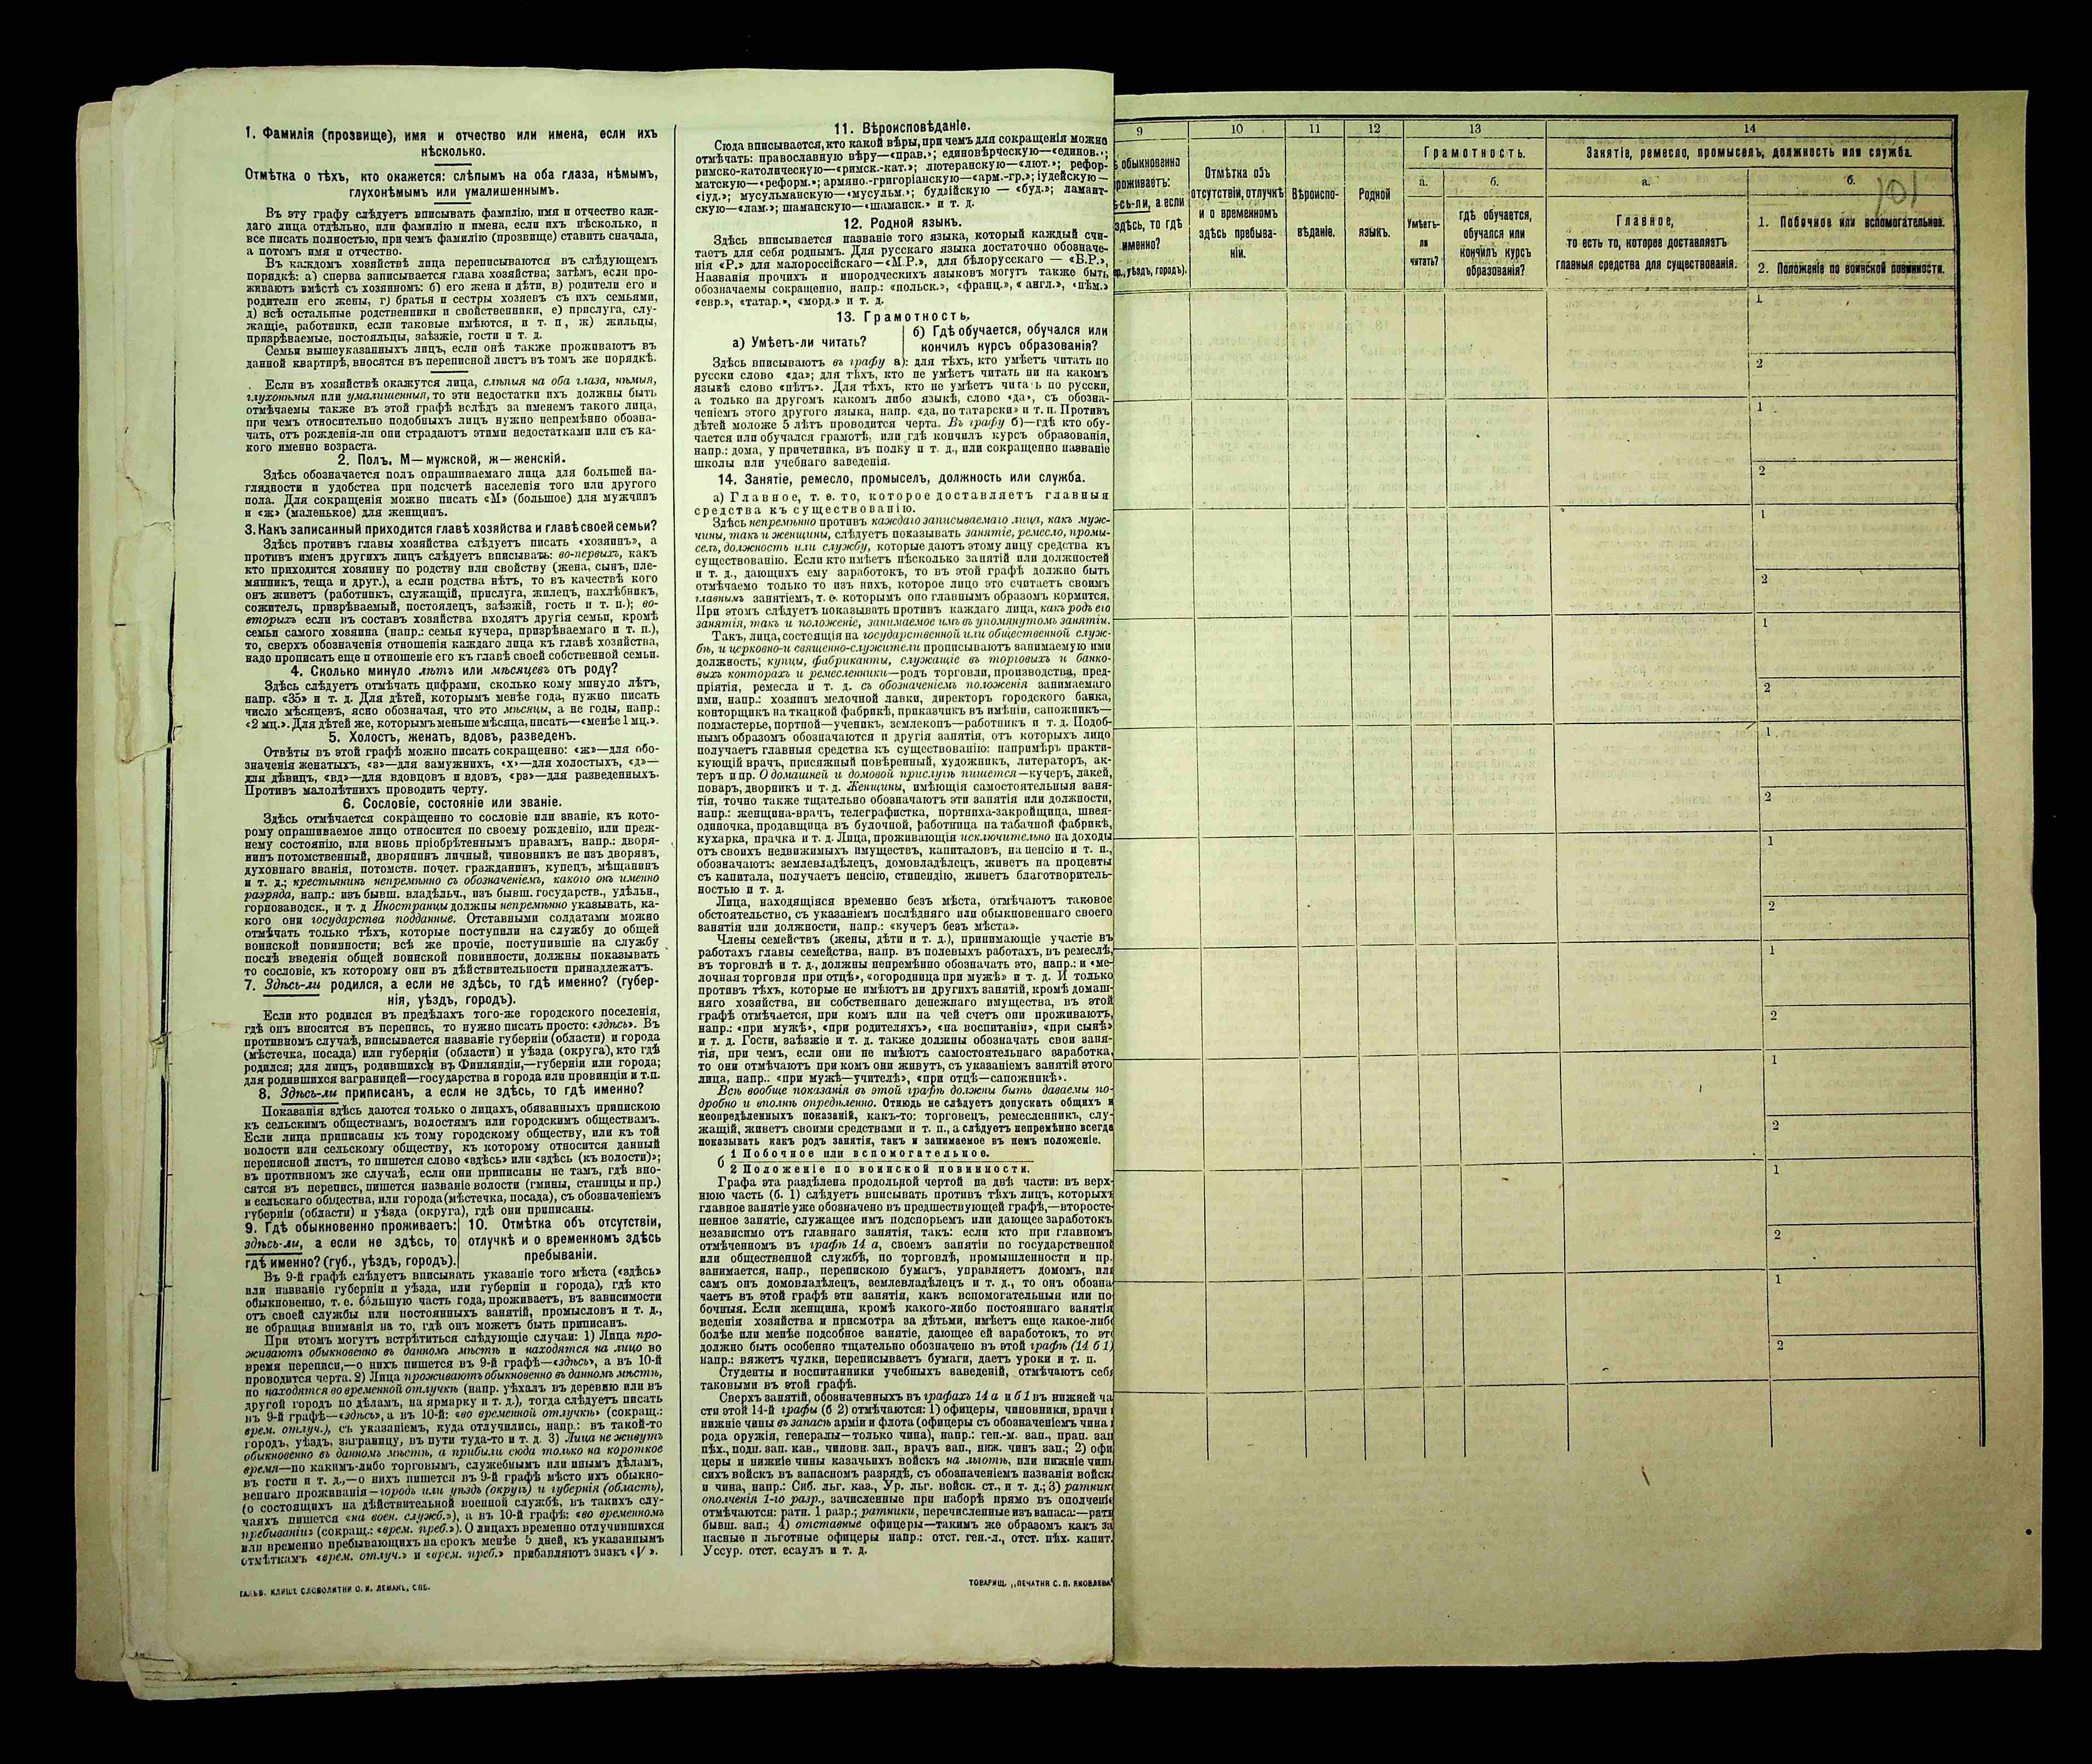 1. Фамилія (прозвище), имя и отчество или имена, если ихъ
нѣсколько.
Отмѣтка о тѣхъ, кто окажется: слѣпымъ на оба глаза, нѣмымъ,
глухонѣмымъ или умалишеннымъ.
Въ эту графу слѣдуетъ вписывать фамилію, имя и отчество каж-
даго лица отдѣльно, или фамилію и имена, если ихъ нѣсколько, и
все писать полностью, при чемъ фамилію (прозвище) ставить сначала,
а потомъ имя и отчество.
Въ каждомъ хозяйствѣ лица переписываются въ слѣдующемъ
порядкѣ: а) сперва записывается глава хозяйства; затѣмъ, если про-
живаютъ вмѣстѣ съ хозяиномъ: б) его жена и дѣти, в) родители его и
родители его жены, г) братья и сестры хозяевъ съ ихъ семьями,
д) всѣ остальные родственники и свойственники, е) прислуга, слу-
жащіе, работники, если таковые имѣются, и т. п, ж) жильцы,
призрѣваемые, постояльцы, заѣзжіе, гости и т. д.
Семьи вышеуказанныхъ лицъ, если онѣ также проживаютъ въ
данной квартирѣ, вносятся въ переписной листъ въ томъ же порядкѣ.
Если въ хозяйствѣ окажутся лица, слѣпыя на оба глаза, нѣмыя,
глухонѣмыя или умалишенныя, то эти недостатки ихъ должны быть
отмѣчаемы также въ этой графѣ вслѣдъ за именемъ такого лица,
при чемъ относительно подобныхъ лицъ нужно непремѣнно обозна-
чать, отъ рожденія-ли они страдаютъ этими недостатками или съ ка-
кого именно возраста.
2. Полъ. М—мужской, ж—женскій.
Здѣсь обозначается полъ опрашиваемаго лица для большей на-
глядности и удобства при подсчетѣ населенія того или другого
пола. Для сокращенія можно писать «М» (большое) для мужчинъ
и «ж» (маленькое) для женщинъ.
3. Какъ записанный приходится главѣ хозяйства и главѣ своей семьи?
Здѣсь противъ главы хозяйства слѣдуетъ писать «хозяинъ», а
противъ именъ другихъ лицъ слѣдуетъ вписывать: во-первыхъ, какъ
кто приходится хозяину по родству или свойству (жена, сынъ, пле-
мянникъ, теща и друг.), а если родства нѣтъ, то въ качествѣ кого
онъ живетъ (работникъ, служащій, прислуга, жилецъ, нахлѣбникъ,
сожитель, призрѣваемый, постоялецъ, заѣзжій, гость и т. п.); во-
вторыхъ если въ составъ хозяйства входятъ другія семьи, кромѣ
семьи самого хозяина (напр.: семья кучера, призрѣваемаго и т. п.),
то, сверхъ обозначенія отношенія каждаго лица къ главѣ хозяйства,
надо прописать еще и отношеніе его къ главѣ своей собственной семьи.
4. Сколько минуло лѣтъ или мѣсяцевъ отъ роду?
Здѣсь слѣдуетъ отмѣчать цифрами, сколько кому минуло лѣтъ,
напр. «35» и т. д. Для дѣтей, которымъ менѣе года, нужно писать
число мѣсяцевъ, ясно обозначая, что это мѣсяцы, а не годы, напр.:
«2 мц.». Для дѣтей же, которымъ меньше мѣсяца, писать—«менѣе 1 мц.».
5. Холостъ, женатъ, вдовъ, разведенъ.
Отвѣты въ этой графѣ можно писать сокращенно: «ж»—для обо-
значенія женатыхъ, «з»—для замужнихъ, «х»—для холостыхъ, «д»—
для дѣвицъ, «вд»—для вдовцовъ и вдовъ, «рз»—для разведенныхъ.
Противъ малолѣтнихъ проводить черту.
6. Сословіе, состояніе или званіе.
Здѣсь отмѣчается сокращенно то сословіе или званіе, къ кото-
рому опрашиваемое лицо относится по своему рожденію, или преж-
нему состоянію, или вновь пріобрѣтеннымъ правамъ, напр.: дворя-
нинъ потомственный, дворянинъ личный, чиновникъ не изъ дворянъ,
духовнаго званія, потомств. почет. гражданинъ, купецъ, мѣщанинъ
и т. д.; крестьянинъ непремѣнно съ обозначеніемъ, какого онъ именно
разряда, напр.: изъ бывш. владѣльч., изъ бывш. государств., удѣльн.,
горнозаводск., и т. д Иностранцы должны непремѣнно указывать, ка-
кого они государства подданные. Отставными солдатами можно
отмѣчать только тѣхъ, которые поступили на службу до общей
воинской повинности; всѣ же прочіе, поступившіе на службу
послѣ введенія общей воинской повинности, должны показывать
то сословіе, къ которому они въ дѣйствительности принадлежатъ.
7. Здѣсь-ли родился, а если не здѣсь, то гдѣ именно? (губер-
нія, уѣздъ, городъ).
Если кто родился въ предѣлахъ того-же городского поселенія,
гдѣ онъ вносится въ перепись, то нужно писать просто: «здѣсь». Въ
противномъ случаѣ, вписывается названіе губерніи (области) и города
(мѣстечка, посада) или губерніи (области) и уѣзда (округа), кто гдѣ
родился; для лицъ, родившихся въ Финляндіи,—губерніи или города;
для родившихся заграницей—государства и города или провинціи и т.п.
8. Здѣсь-ли приписанъ, а если не здѣсь, то гдѣ именно?
Показанія здѣсь даются только о лицахъ, обязанныхъ припискою
къ сельскимъ обществамъ, волостямъ или городскимъ обществамъ.
Если лица приписаны къ тому городскому обществу, или къ той
волости или сельскому обществу, къ которому относится данный
переписной листъ, то пишется слово «здѣсь» или «здѣсь (къ волости)»;
въ противномъ же случаѣ, если они приписаны не тамъ, гдѣ вно-
сятся въ перепись, пишется названіе волости (гмины, станицы и пр.)
и сельскаго общества, или города (мѣстечка, посада), съ обозначеніемъ
губерніи (области) и уѣзда (округа), гдѣ они приписаны.
9. Гдѣ обыкновенно проживаетъ:
здѣсь-ли, а если не здѣсь, то
гдѣ именно? (губ., уѣздъ, городъ).
10. Отмѣтка объ отсутствіи,
отлучкѣ и о временномъ здѣсь
пребываніи.
Въ 9-й графѣ слѣдуетъ вписывать указаніе того мѣста («здѣсь»
или названіе губерніи и уѣзда, или губерніи и города), гдѣ кто
обыкновенно, т. е. бóльшую часть года, проживаетъ, въ зависимости
отъ своей службы или постоянныхъ занятій, промысловъ и т. д.,
не обращая вниманія на то, гдѣ онъ можетъ быть приписанъ.
При этомъ могутъ встрѣтиться слѣдующіе случаи: 1) Лица про-
живаютъ обыкновенно въ данномъ мѣстѣ и находятся на лицо во
время переписи,—о нихъ пишется въ 9-й графѣ—«здѣсь», а въ 10-й
проводится черта. 2) Лица проживаютъ обыкновенно въ данномъ мѣстѣ,
но находятся во временной отлучкѣ (напр. уѣхалъ въ деревню или въ
другой городъ по дѣламъ, на ярмарку и т. д.), тогда слѣдуетъ писать
въ 9-й графѣ—«здѣсь», а въ 10-й: «во временной отлучкѣ» (сокращ.:
врем. отлуч.), съ указаніемъ, куда отлучились, напр.: въ такой-то
городъ, уѣздъ, заграницу, въ пути туда-то и т. д. 3) Лица не живутъ
обыкновенно въ данномъ мѣстѣ, а прибыли сюда только на короткое
время—по какимъ-либо торговымъ, служебнымъ или инымъ дѣламъ,
въ гости и т. д.,—о нихъ пишется въ 9-й графѣ мѣсто ихъ обыкно-
веннаго проживанія—городъ или уѣздъ (округъ) и губернія (область),
(о состоящихъ на дѣйствительной военной службѣ, въ такихъ слу-
чаяхъ пишется «на воен. служб.»), а въ 10-й графѣ: «во временномъ
пребываніи» (сокращ.: «врем. преб.»). О лицахъ временно отлучившихся
или временно пребывающихъ на срокъ менѣе 5 дней, къ указаннымъ
отмѣткамъ «врем. отлуч.» и «врем. преб.» прибавляютъ знакъ «V».
ГАЛЬВ. КЛИШЕ СЛОВОЛИТНИ О. И. ЛЕМАНЪ, СПБ.
11. Вѣроисповѣданіе.
Сюда вписывается, кто какой вѣры, при чемъ для сокращенія можно
отмѣчать: православную вѣру—«прав.»; единовѣрческую—«единов.»;
римско-католическую—«римск.-кат.»; лютеранскую—«лют.»; рефор-
матскую—«реформ.»; армяно.-григоріанскую—«арм.-гр.»; іудейскую—
«іуд.»; мусульманскую—«мусульм.»; будзійскую — «буд.»; ламаит-
скую—«лам.»; шаманскую—«шаманск.» и т. д.
12. Родной языкъ.
Здѣсь вписывается названіе того языка, который каждый счи-
таетъ для себя роднымъ. Для русскаго языка достаточно обозначе-
нія «Р.» для малороссійскаго—«М.Р.», для бѣлорусскаго — «Б.Р.»,
Названія прочихъ и инородческихъ языковъ могутъ также быть
обозначаемы сокращенно, напр.: «польск.», «франц.», «англ.», «нѣм.»
«евр.», «татар.», «морд.» и т. д.
13. Грамотность.
а) Умѣетъ-ли читать?
б) Гдѣ обучается, обучался или
кончилъ курсъ образованія?
Здѣсь вписываютъ въ графу а): для тѣхъ, кто умѣетъ читать по
русски слово «да»; для тѣхъ, кто не умѣетъ читать ни на какомъ
языкѣ слово «нѣтъ». Для тѣхъ, кто не умѣетъ читать по русски,
а только на другомъ какомъ либо языкѣ, слово «да», съ обозна-
ченіемъ этого другого языка, напр. «да, по татарски» и т. п. Противъ
дѣтей моложе 5 лѣтъ проводится черта. Въ графу б)—гдѣ кто обу-
чается или обучался грамотѣ, или гдѣ кончилъ курсъ образованія,
напр.: дома, у причетника, въ полку и т. д., или сокращенно названіе
школы или учебнаго заведенія.
14. Занятіе, ремесло, промыселъ, должность или служба.
а) Главное, т. е. то, которое доставляетъ главныя
средства къ существованію.
Здѣсь непремѣнно противъ каждаго записываемаго лица, какъ муж-
чины, такъ и женщины, слѣдуетъ показывать занятіе, ремесло, промы-
селъ, должность или службу, которые даютъ этому лицу средства къ
существованію. Если кто имѣетъ нѣсколько занятій или должностей
и т. д., дающихъ ему заработокъ, то въ этой графѣ должно быть
отмѣчаемо только то изъ нихъ, которое лицо это считаетъ своимъ
главнымъ занятіемъ, т. е. которымъ оно главнымъ образомъ кормится.
При этомъ слѣдуетъ показывать противъ каждаго лица, какъ родъ его
занятія, такъ и положеніе, занимаемое имъ въ упомянутомъ занятіи.
Такъ, лица, состоящія на государственной или общественной служ-
бѣ, и церковно-и священно-служители прописываютъ занимаемую ими
должность; купцы, фабриканты, служащіе въ торговыхъ и банко-
выхъ конторахъ и ремесленники—родъ торговли, производства, пред-
пріятія, ремесла и т. д. съ обозначеніемъ положенія занимаемаго
ими, напр.: хозяинъ мелочной лавки, директоръ городского банка,
конторщикъ на ткацкой фабрикѣ, приказчикъ въ имѣніи, сапожникъ—
подмастерье, портной—ученикъ, землекопъ—работникъ и т. д. Подоб-
нымъ образомъ обозначаются и другія занятія, отъ которыхъ лицо
получаетъ главныя средства къ существованію: напримѣръ практи-
кующій врачъ, присяжный повѣренный, художникъ, литераторъ, ак-
теръ и пр. О домашней и домовой прислугѣ пишется—кучеръ, лакей,
поваръ, дворникъ и т. д. Женщины, имѣющія самостоятельныя заня-
тія, точно также тщательно обозначаютъ эти занятія или должности,
напр.: женщина-врачъ, телеграфистка, портниха-закройщица, швея-
одиночка, продавщица въ булочной, работница на табачной фабрикѣ,
кухарка, прачка и т. д. Лица, проживающія исключительно на доходы
отъ своихъ недвижимыхъ имуществъ, капиталовъ, на пенсію и т. п.,
обозначаютъ: землевладѣлецъ, домовладѣлецъ, живетъ на проценты
съ капитала, получаетъ пенсію, стипендію, живетъ благотворитель-
ностью и т. д.
Лица, находящіяся временно безъ мѣста, отмѣчаютъ таковое
обстоятельство, съ указаніемъ послѣдняго или обыкновеннаго своего
занятія или должности, напр.: «кучеръ безъ мѣста».
Члены семействъ (жены, дѣти и т. д.), принимающіе участіе въ
работахъ главы семейства, напр. въ полевыхъ работахъ, въ ремеслѣ,
въ торговлѣ и т. д., должны непремѣнно обозначать это, напр.: и «ме-
лочная торговля при отцѣ», «огородница при мужѣ» и т. д. И только
противъ тѣхъ, которые не имѣютъ ни другихъ занятій, кромѣ домаш-
няго хозяйства, ни собственнаго денежнаго имущества, въ этой
графѣ отмѣчается, при комъ или на чей счетъ они проживаютъ,
напр.: «при мужѣ», «при родителяхъ», «на воспитаніи», «при сынѣ»
и т. д. Гости, заѣзжіе и т. д. также должны обозначать свои заня-
тія, при чемъ, если они не имѣютъ самостоятельнаго заработка,
то они отмѣчаютъ при комъ они живутъ, съ указаніемъ занятій этого
лица, напр.: «при мужѣ—учителѣ», «при отцѣ—сапожникѣ».
Всѣ вообще показанія въ этой графѣ должны быть даваемы по-
дробно и вполнѣ опредѣленно. Отнюдь не слѣдуетъ допускать общихъ и
неопредѣленныхъ показаній, какъ-то: торговецъ, ремесленникъ, слу-
жащій, живетъ своими средствами и т. п., а слѣдуетъ непремѣнно всегда
показывать какъ родъ занятія, такъ и занимаемое въ немъ положеніе.
б 1 Побочное или вспомогательное.
2 Положеніе по воинской повинности.
Графа эта раздѣлена продольной чертой на двѣ части: въ верх-
нюю часть (б. 1) слѣдуетъ вписывать противъ тѣхъ лицъ, которыхъ
главное занятіе уже обозначено въ предшествующей графѣ,—второсте-
пенное занятіе, служащее имъ подспорьемъ или дающее заработокъ
независимо отъ главнаго занятія, такъ: если кто при главномъ
отмѣченномъ въ графѣ 14 а, своемъ занятіи по государственной
или общественной службѣ, по торговлѣ, промышленности и пр.
занимается, напр., перепискою бумагъ, управляетъ домомъ, или
самъ онъ домовладѣлецъ, землевладѣлецъ и т. д., то онъ обозна
чаетъ въ этой графѣ эти занятія, какъ вспомогательныя или по
бочныя. Если женщина, кромѣ какого-либо постояннаго занятія
веденія хозяйства и присмотра за дѣтьми, имѣетъ еще какое-либо
болѣе или менѣе подсобное занятіе, дающее ей заработокъ, то это
должно быть особенно тщательно обозначено въ этой графѣ (14 б 1)
напр.: вяжетъ чулки, переписываетъ бумаги, даетъ уроки и т. п.
Студенты и воспитанники учебныхъ заведеній, отмѣчаютъ себя
таковыми въ этой графѣ.
Сверхъ занятій, обозначенныхъ въ графахъ 14 а и б 1 въ нижней ча
сти этой 14-й графы (б 2) отмѣчаются: 1) офицеры, чиновники, врачи и
нижніе чины въ запасѣ арміи и флота (офицеры съ обозначеніемъ чина и
рода оружія, генералы—только чина), напр.: ген.-м. зап., прап. зап
пѣх., подп. зап. кав., чиновн. зап., врачъ зап., ниж. чинъ зап.; 2) офи
церы и нижніе чины казачьихъ войскъ на льготѣ, или нижніе чины
сихъ войскъ въ запасномъ разрядѣ, съ обозначеніемъ названія войска
и чина, напр.: Сиб. льг. каз., Ур. льг. войск. ст., и т. д.; 3) ратники
ополченія 1-го разр., зачисленные при наборѣ прямо въ ополченіе
отмѣчаются: ратн. 1 разр.; ратники, перечисленные изъ запаса:—ратн
бывш. зап.; 4) отставные офицеры—такимъ же образомъ какъ за
пасные и льготные офицеры напр.: отст. ген.-л., отст. пѣх. капит.
Уссур. отст. есаулъ и т. д.
ТОВАРИЩ. „ПЕЧАТНЯ С. П. ЯКОВЛЕВА"
9
10
11
12
13
14
обыкновенно
роживаетъ:
сь-ли, а если
здѣсь, то гдѣ
именно?
уѣздъ, городъ).
Отмѣтка объ
отсутствіи, отлучкѣ
и о временномъ
здѣсь пребыва-
ніи.
Вѣроиспо-
вѣданіе.
Родной
языкъ.
Грамотность.
а.
Умѣетъ-
ли
читать?
б.
Гдѣ обучается,
обучался или
кончилъ курсъ
образованія?
Занятіе, ремесло, промыселъ, должность или служба.
а.
Главное,
то есть то, которое доставляетъ
главныя средства для существованія.
б.
101
1. Побочное или вспомогательное.
2. Положеніе по воинской повинности.
1
2
1
2
1
2
1
2
1
2
1
2
1
2
1
2
1
2
1
2